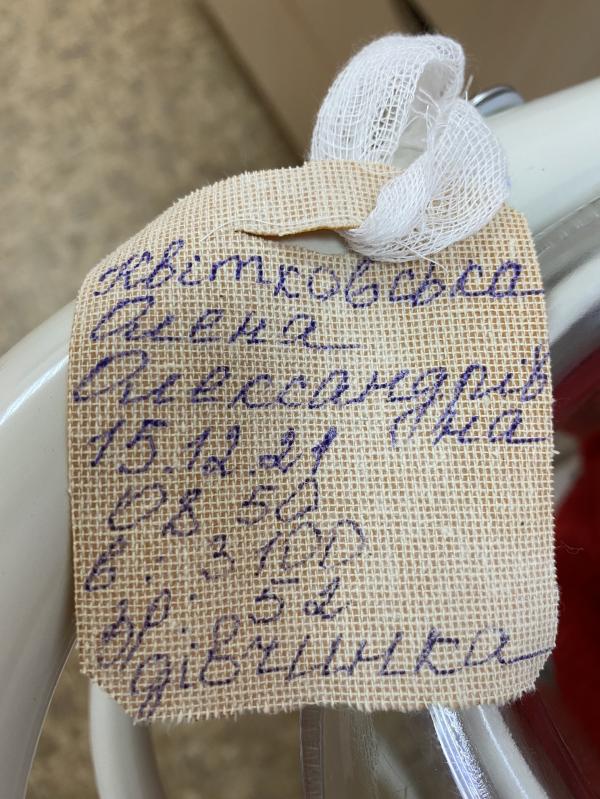 Квітковська
Олена
Олександрів
на
15.12.21
08 50
в: 3100
зр. 52
дівчинка